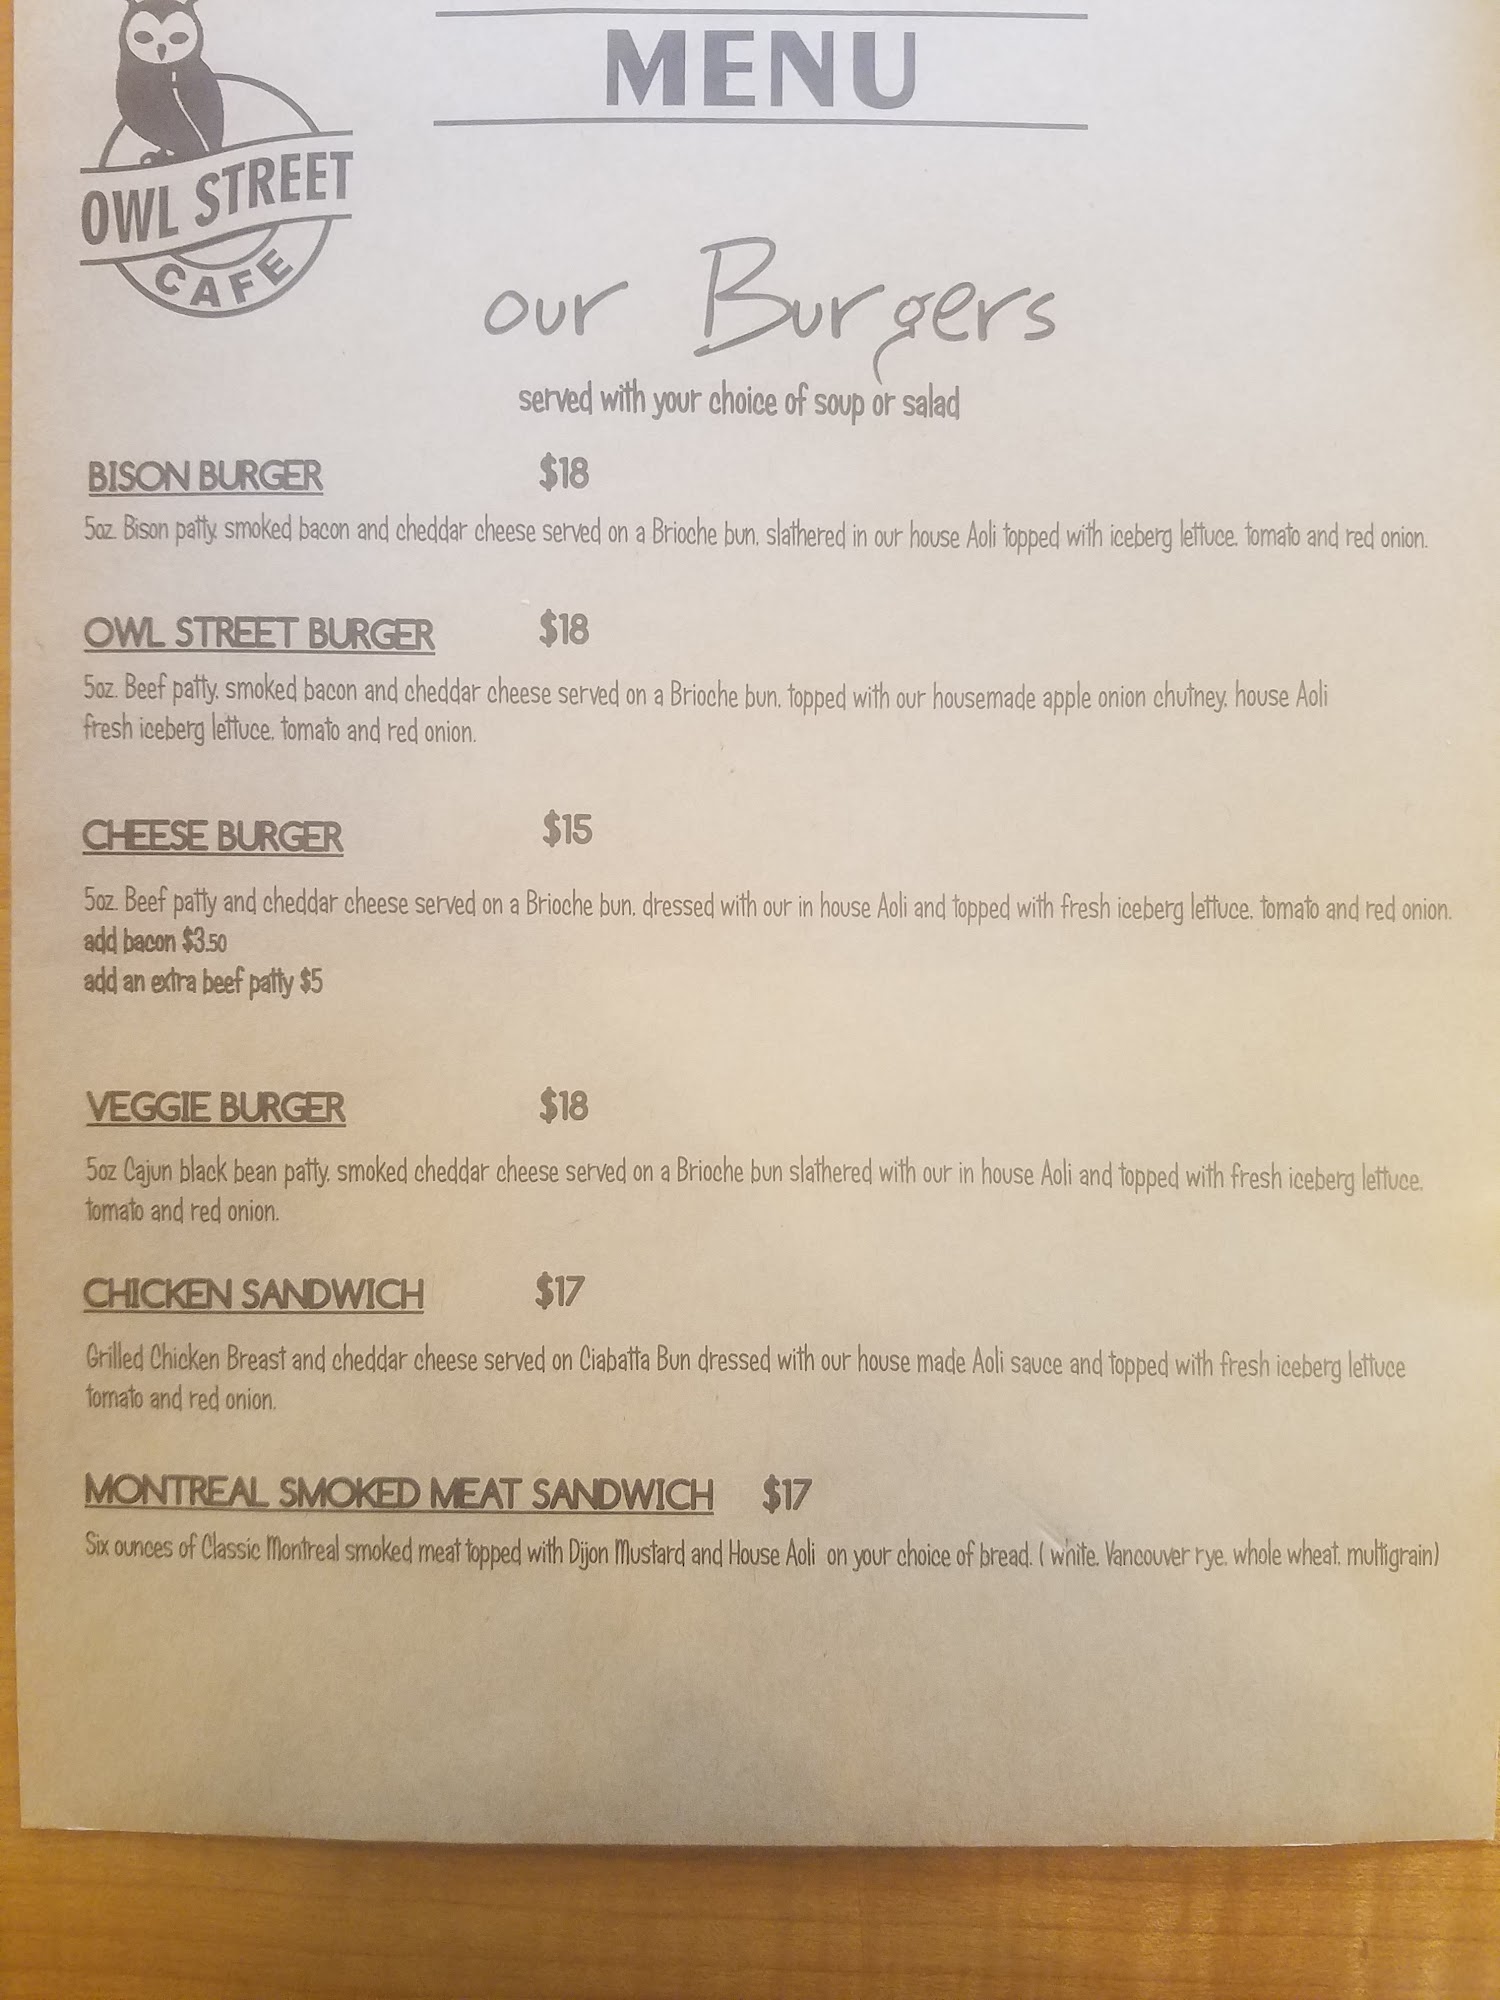 MENU
OWL STREET
CAFE
our Burgers
served with your choice of soup or salad
BISON BURGER $18
5oz. Bison patty, smoked bacon and cheddar cheese served on a Brioche bun, slathered in our house Aoli topped with iceberg lettuce, tomato and red onion.
OWL STREET BURGER $18
5oz. Beef patty, smoked bacon and cheddar cheese served on a Brioche bun, topped with our housemade apple onion chutney, house Aoli
fresh iceberg lettuce, tomato and red onion.
CHEESE BURGER $15
5oz. Beef patty and cheddar cheese served on a Brioche bun, dressed with our in house Aoli and topped with fresh iceberg lettuce, tomato and red onion.
add bacon $3.50
add an extra beef patty $5
VEGGIE BURGER $18
5oz Cajun black bean patty, smoked cheddar cheese served on a Brioche bun slathered with our in house Aoli and topped with fresh iceberg lettuce,
tomato and red onion.
CHICKEN SANDWICH $17
Grilled Chicken Breast and cheddar cheese served on Ciabatta Bun dressed with our house made Aoli sauce and topped with fresh iceberg lettuce
tomato and red onion.
MONTREAL SMOKED MEAT SANDWICH $17
Six ounces of Classic Montreal smoked meat topped with Dijon Mustard and House Aoli on your choice of bread. ( white, Vancouver rye, whole wheat, multigrain)